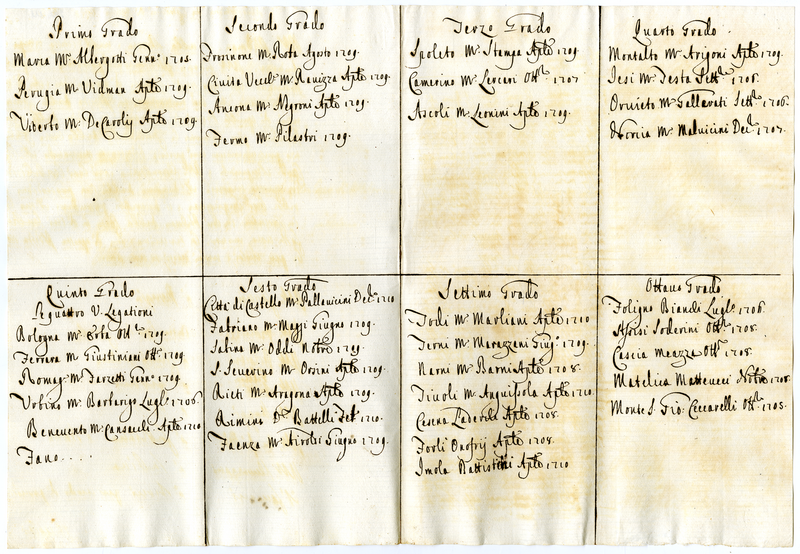 Primo Grado
Marca Mr Albergotti Gennro 1708.
Perugia Mr Vidman Aple 1709.
Viterbo Mr DeCarolij Aple 1709.
Secondo Grado
Frosinone Mr Rota Agoto 1709.
Civita Vecchia Mr Ravizza Aple 1709.
Ancona Mr Negroni Aple 1709.
Fermo Mr Pilastri 1709.
Terzo Grado
Spoleto Mr Stampa Aple 1709.
Camerino Mr Lercari Ottre 1707
Ascoli Mr Leonini Aple 1709.
Quarto Grado.
Montalto Mr Arigoni Aple 1709.
Iesi Mr Testa Settre 1706.
Orvieto Mr Gallarati Settre 1706.
Norcia Mr Malvicini Decre 1707.
Quinto Grado
Le quattro V. Legationi
Bologna Mr Erba Ottre 1709.
Ferrara Mr Giustiniani Ottre 1709
Romagna Mr Farzetti Genno 1709.
Urbino Mr Barbarigo Luglo 1706
Benevento Mr Cansacchi Aple 1710
Fano . . . .
Sesto Grado
Città di Castello Mr Pallavicini Decre 1710
Fabriano Mr Maggi Giugno 1709.
Sabina Mr Oddi Nobre 1709.
S. Severino Mr Orsini Aple 1709.
Rieti Mr Aragona Aple 1709.
Rimini Dr Battelli Feb 1710.
Faenza Mr Airoldi Giugno 1709.
Settimo Grado
Todi Mr Marliani Aple 1710
Terni Mr Marazzani Giugo 1709.
Narni Mr Barni Aple 1708.
Tivoli Mr Anguissola Aple 1710.
Cesena Aple 1708.
Forli Onofrij Aple 1708.
Imola Battistini Aple 1710
Ottavo Grado
Foligno Biandi Luglo 1706.
Assisi Soderini Ottre 1708.
Cascia Meazza Ottre 1708.
Matelica Matteucci Nobre 1708.
Monte S. Gio: Ceccarelli Ottre 1705.